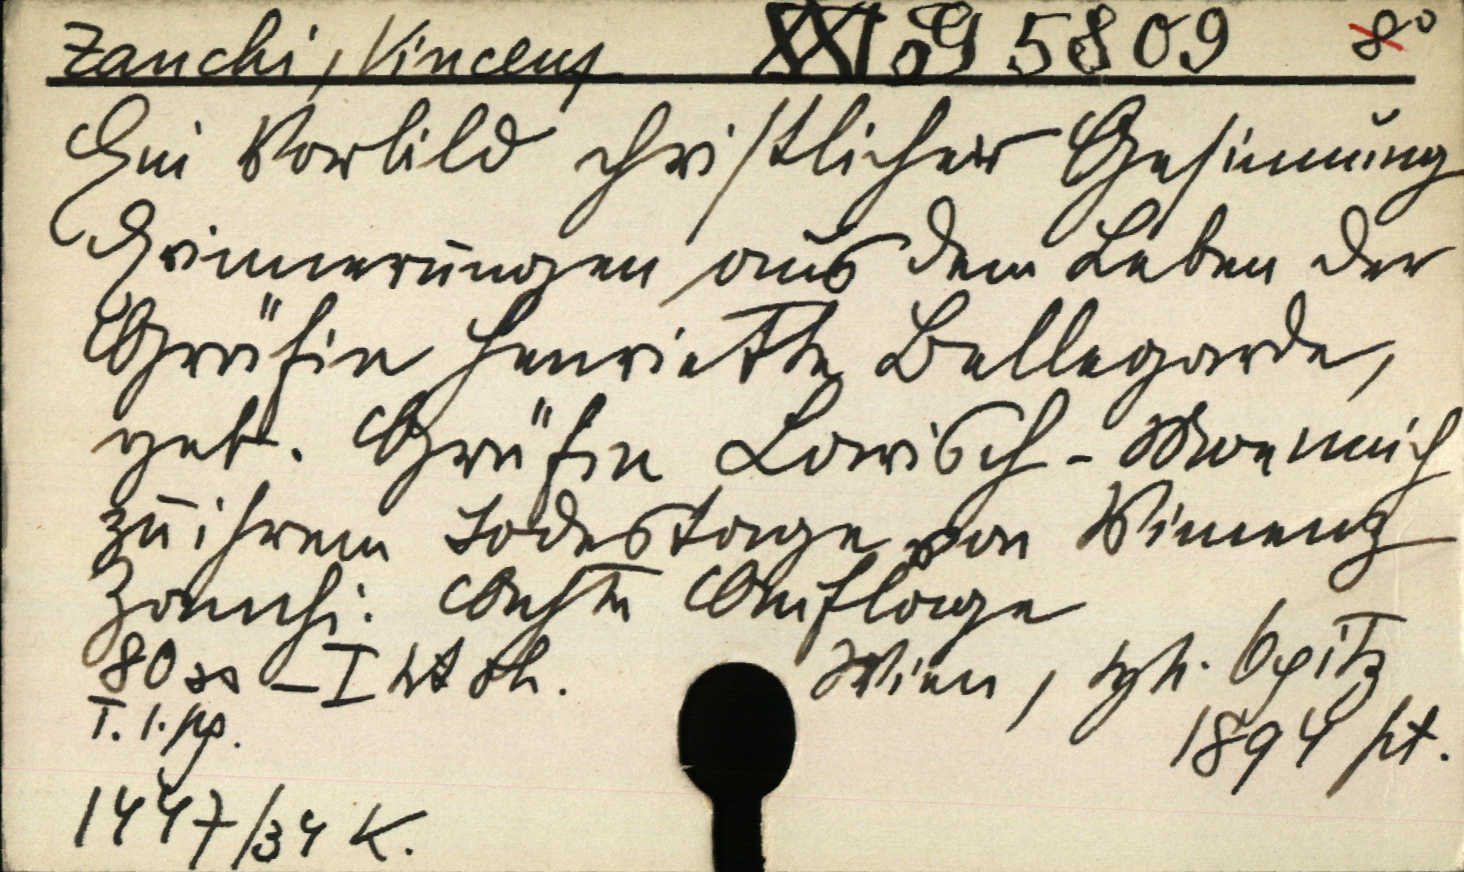 Zanchi, Vincenz XXI 59 5809 8°
Ein Vorbild christlicher Gesinnung
Erinnerungen aus dem Leben der
Gräfin Henriette Bellegarde,
geb. Gräfin Larisch-Moennich
zu ihrem Todestage von Vincenz
Zanchi. Achte Auflage
80 ss – I
Wien, Opitz
1894
1447/34 K.